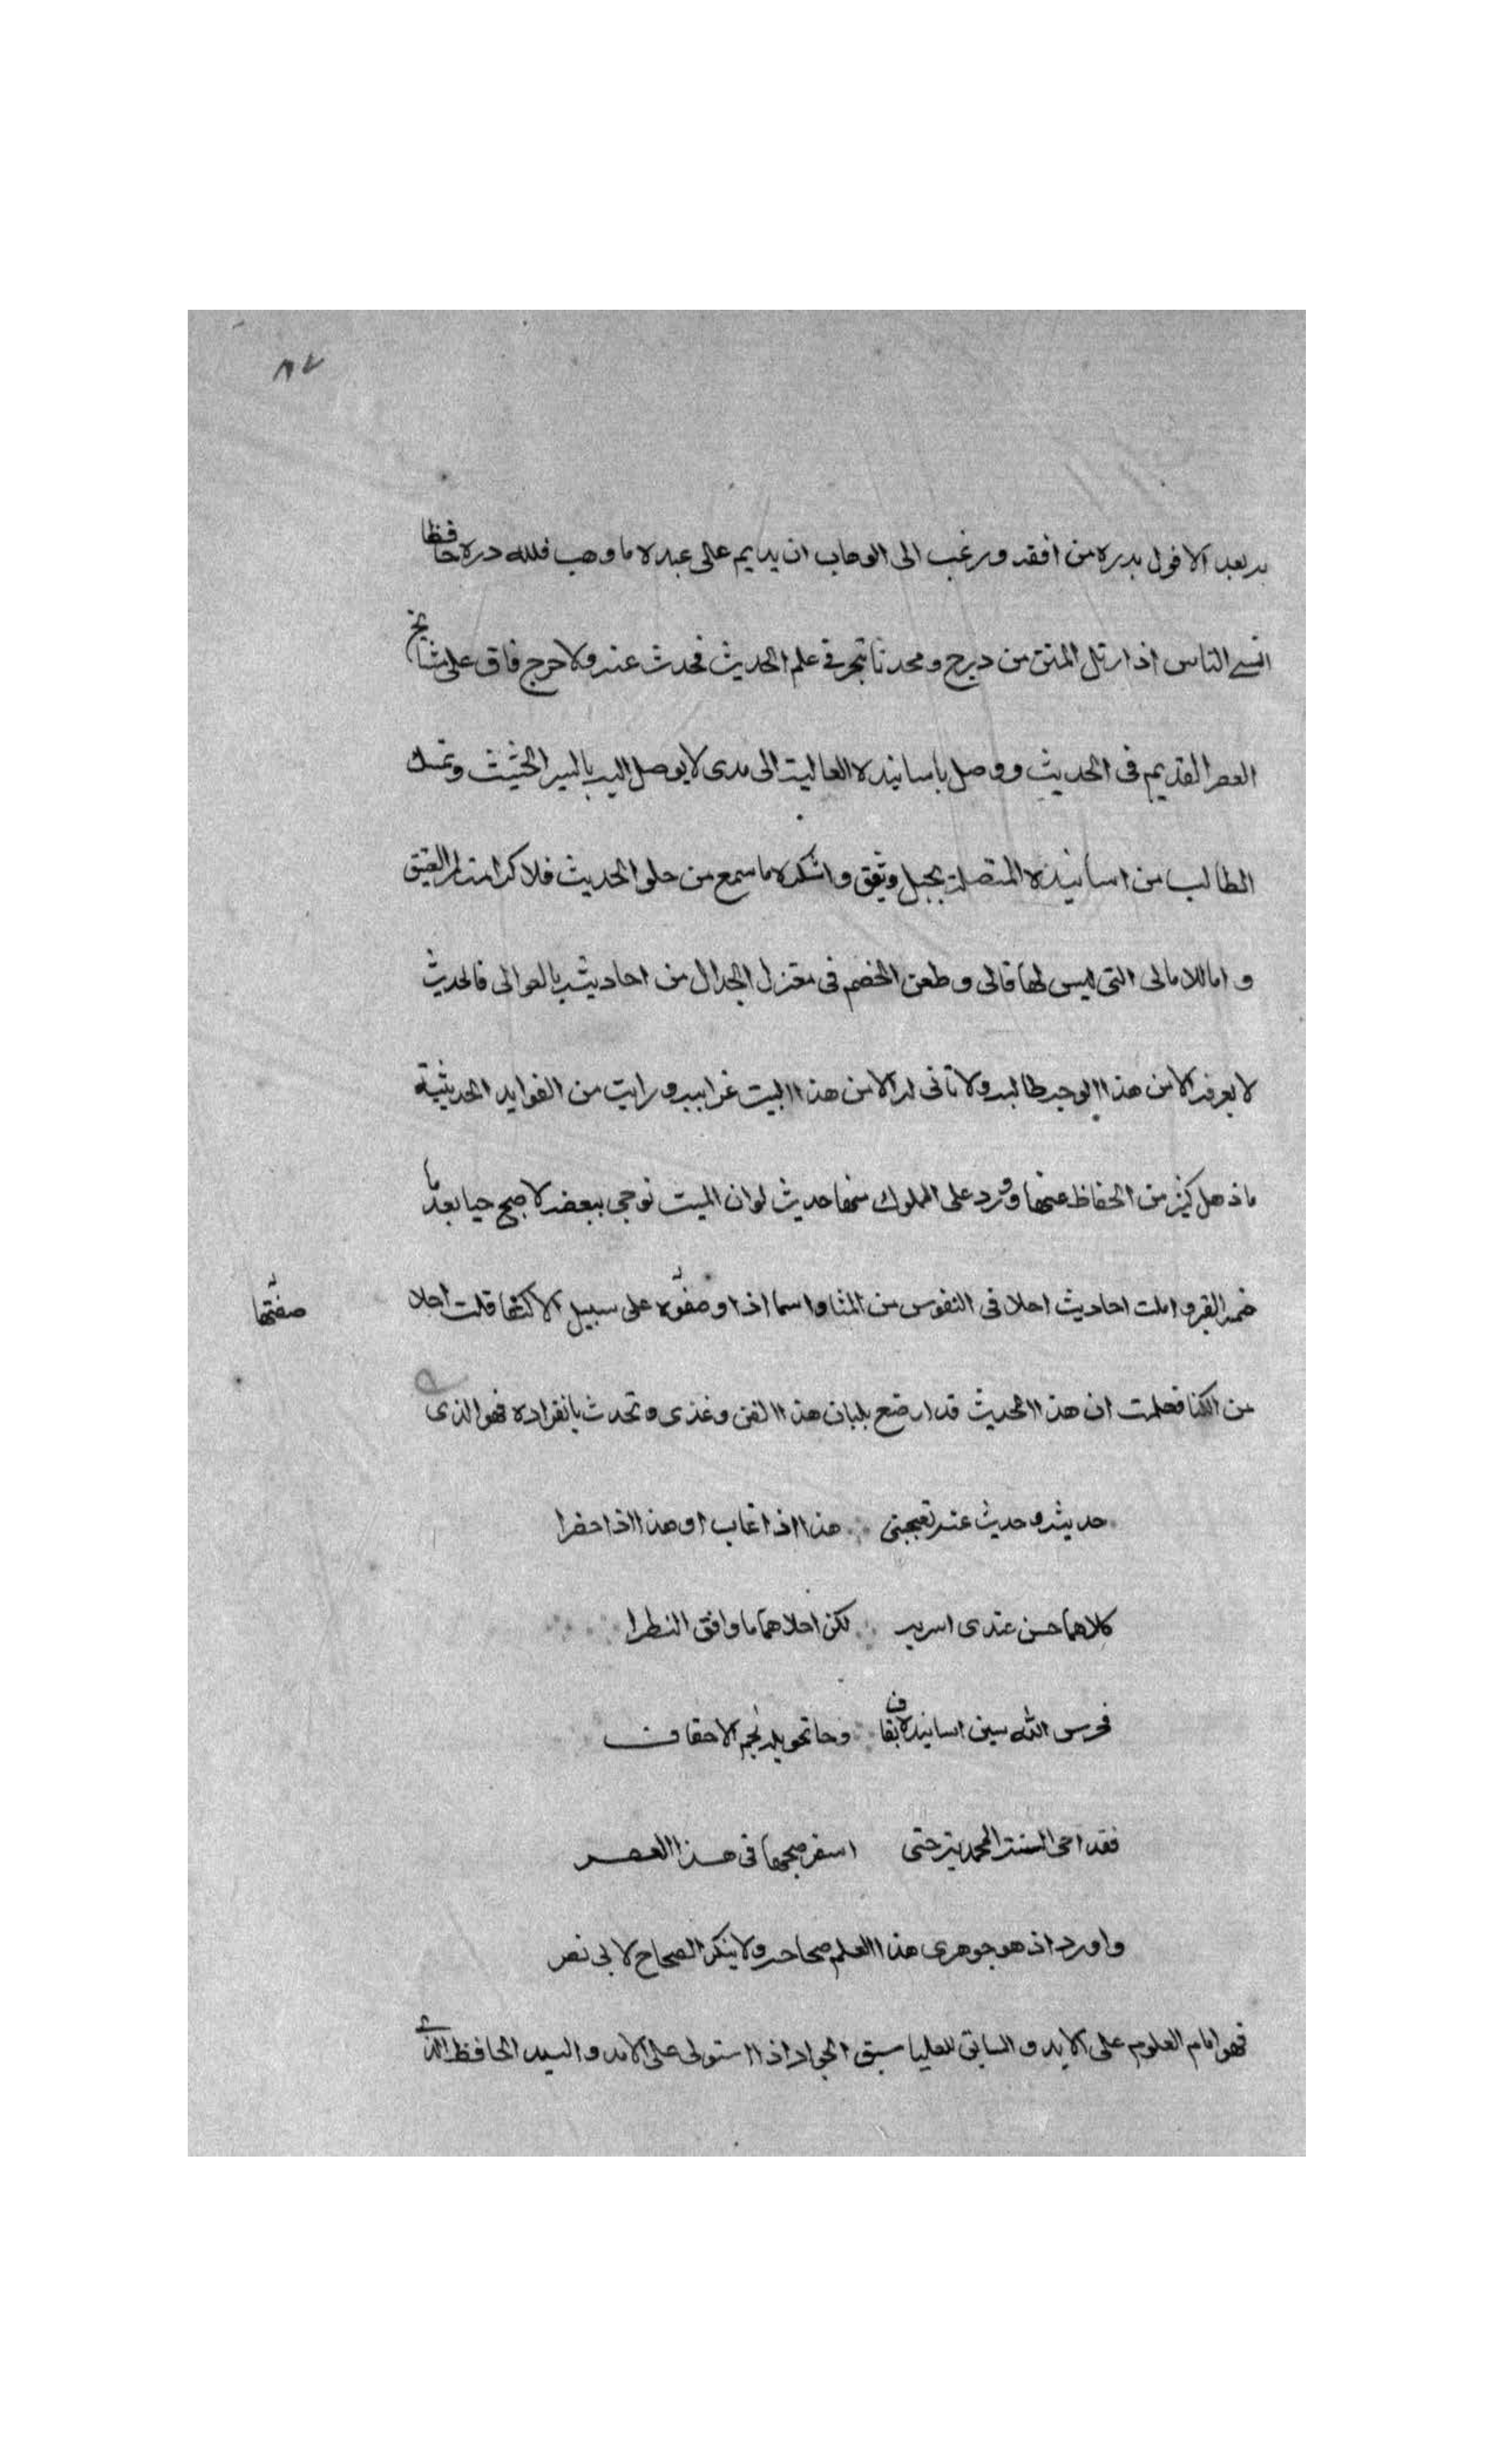 ٨٧
به بعد الافول بدره من أفقه ورغب الى الوهاب ان يديم على عبده ما وهب فلله دره حافظا
انسى الناس اذا رتل المتن من درج ومحدثا تبحر في علم الحديث فحدث عنه ولا حرج فاق على مشايخ
العصر القديم في الحديث ووصل باسانيده العاليه الى مدى لا يوصل اليه بالسير الحثيث وتمسك
الطالب من اسانيده المتصله بحبل وثيق واسكره ما سمع من حلو الحديث فلا كرامه للعتيق
واما الامالى التى ليس لها قالى وطعن الخصم في معترك الجدال من احاديثه بالعوالى فالحديث
لا يعرفه الا من هذا الوجه طالبه ولا تاتى له الا من هذا البيت غرايبه ورايت من الفوايد الحديثية
ما ذهل كثير من الحفاظ عنها وورد على المملوك منها حديث لو ان الميت نوجي ببعضه لاصبح حيا بعد ما
ضمه القبر واملت احاديث احلا في النفوس من المنا واسما اذا وصفوه على سبيل الاكتفا قلت احلا
صفتها
من الكنا فعلمت ان هذا الحديث قد ارضع بلبان هذا الفن وغذى وتحدث بانفراده فهو الذى
حديثه وحديث عنه تعجبنى هذا اذا غاب او هذا اذا حضرا
كلاهما حسن عندى اسر به لكن احلاهما ما وافق النظرا
فحرس الله سين اسانيده بقاف وحا تحويله بحم الاحقاف
فقد احى السنة المحمديه حتى اسفر صبحها في هذا العصر
واورد اذ هو جوهرى هذا العلم صحاحه ولا ينكر الصحاح لابى نصر
فهو امام العلوم على الابد والسابق للعليا سبق الجواد اذا استولى على الامد والسيد الحافظ الذى